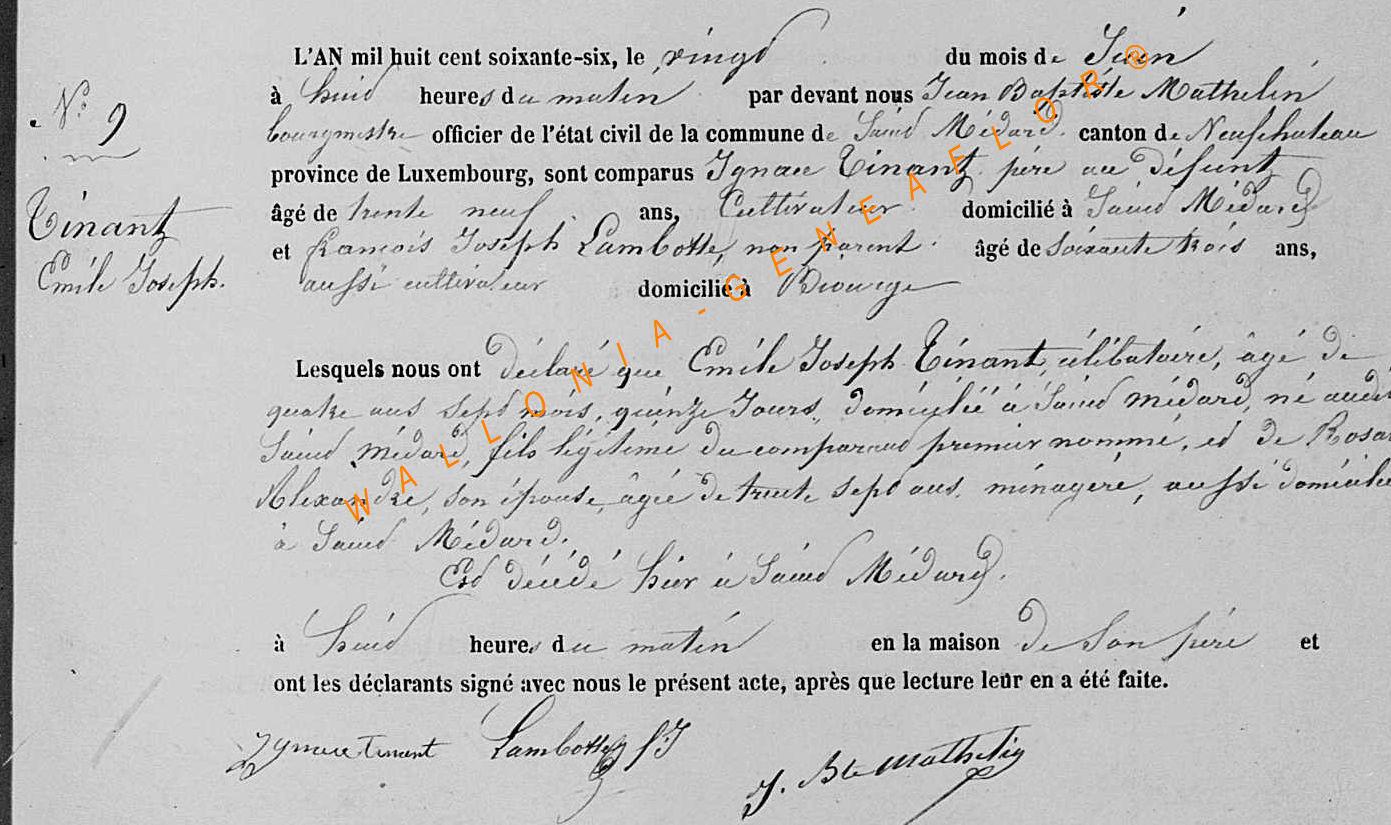 L'AN mil huit cent soixante-six, le vingt du mois de Juin
à huit heures du matin par devant nous Jean Baptiste Mathelin
N° 9
bourgmestre officier de l'état civil de la commune de Saint Médard canton de Neufchateau
province de Luxembourg, sont comparus Ignace Tinant père au défunt
Tinant
âgé de trente neuf ans, Cultivateur domicilié à Saint Médard
Emile Joseph.
et françois Joseph Lambotte, non parent âgé de Soixante trois ans,
aussi cultivateur domicilié à
Lesquels nous ont déclaré que Emile Joseph Tinant, célibataire, âgé de
quatre ans sept mois, quinze Jours, domicilié à Saint Médard, né audit
Saint Médard, fils légitime du comparant premier nommé, et de
Alexandre, son épouse, âgée de trente sept ans, ménagère, aussi domiciliée
à Saint Médard.
Est décédé hier à Saint Médard.
à huit heures du matin en la maison de Son père et
ont les déclarants signé avec nous le présent acte, après que lecture leur en a été faite.
Ignace Tinant Lambotte f J
J. Bte Mathelin
WALLONIA-GENEAELOR®